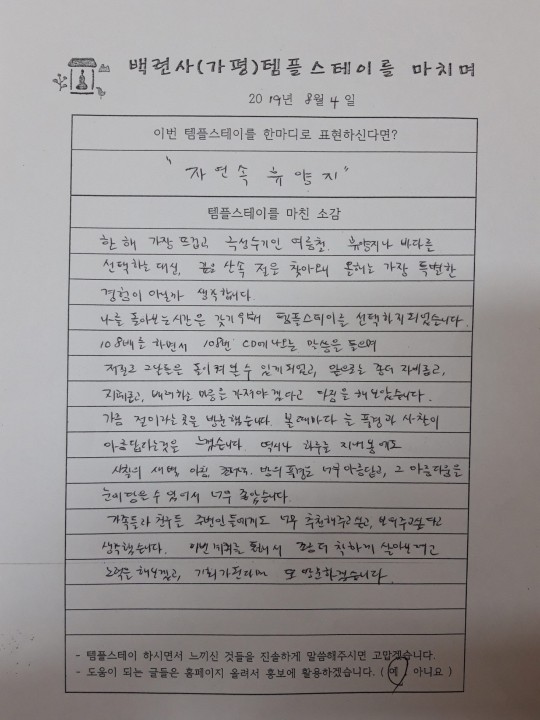 백련사(가평)템플스테이를 마치며
2019년 8월 4일
이번 템플스테이를 한마디로 표현하신다면?
"자연속 휴양지"
템플스테이를 마친 소감
한 해 가장 뜨겁고, 극성수기인 여름철. 휴양지나 바다를
선택하는 대신, 깊은 산속 절을 찾아와 올해는 가장 특별한
경험이 아닐까 생각합니다.
나를 돌아보는 시간을 갖기 위해 템플스테이를 선택하게되었습니다.
108배를 하면서 108번 CD에 나오는 말씀을 들으며
저의 그날들을 돌이켜 볼 수 있게 되었고, 앞으로는 좀더 자비롭고,
지혜롭고, 배려하는 마음을 가져야 겠다고 다짐을 해보았습니다.
가끔 절이라는 곳을 방문했습니다. 볼때마다 늘 풍경과 사찰이
아름답다는것은 느꼈습니다. 역시나 하루를 지내봄에도
사찰의 새벽 아침 밤의 풍경도 너무 아름답고, 그 아름다움을
눈에 담을 수 있어서 너무 좋았습니다.
가족들과 친구들 주변인들에게도 너무 추천해주고싶고, 보여주고싶다고
생각했습니다. 이번 기회를 통해서 좀더 착하게 살아보려고
노력을 해보겠고, 기회가 된다면 또 방문하겠습니다.
- 템플스테이 하시면서 느끼신 것들을 진솔하게 말씀해주시면 고맙겠습니다.
- 도움이 되는 글들은 홈페이지 올려서 홍보에 활용하겠습니다. ( 예 아니요 )